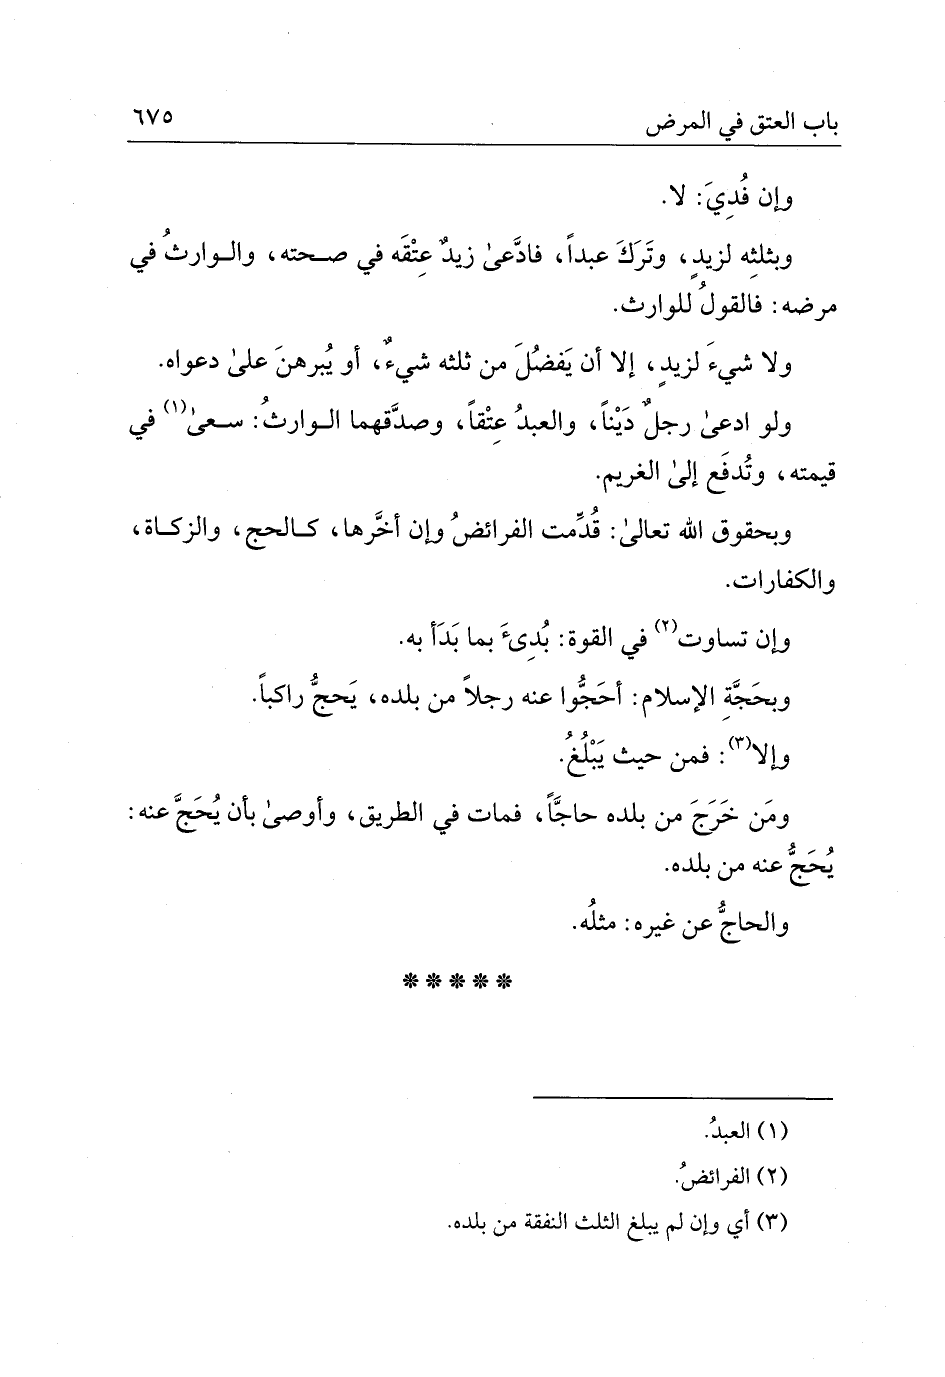 باب العتق في المرض ٦٧٥
وإن فُدِيَ: لا.
وبثلثِه لزيدٍ، وتَرَكَ عبداً، فادَّعىٰ زيدٌ عِتْقَه في صحته، والوارثُ في
مرضه: فالقولُ للوارث.
ولا شيءَ لزيدٍ، إلا أن يَفضُلَ من ثلثه شيءٌ، أو يُبرهنَ علىٰ دعواه.
ولو ادعىٰ رجلٌ دَيْناً، والعبدُ عِتْقاً، وصدَّقهما الوارثُ: سعىٰ(١) في
قيمته، وتُدفَع إلىٰ الغريم.
وبحقوق الله تعالىٰ: قُدِّمت الفرائضُ وإن أخَّرها، كالحج، والزكاة،
والكفارات.
وإن تساوت(٢) في القوة: بُدِئَ بما بَدَأ به.
وبحَجَّةِ الإسلام: أحَجُّوا عنه رجلاً من بلده، يَحجُّ راكباً.
وإلا(٣): فمن حيث يَبْلُغُ.
ومَن خَرَجَ من بلده حاجَّاً، فمات في الطريق، وأوصىٰ بأن يُحَجَّ عنه:
يُحَجُّ عنه من بلده.
والحاجُّ عن غيره: مثلُه.
*****
(١) العبدُ.
(٢) الفرائضُ.
(٣) أي وإن لم يبلغ الثلث النفقة من بلده.